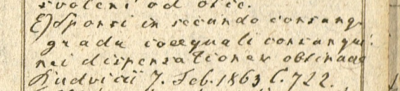 svolení od otce.
E) Sponsi in secundo consangu
gradu coaequali consangui
nei dispensationem obtinae
Ludvicii 7. Feb. 1863 C. 722.